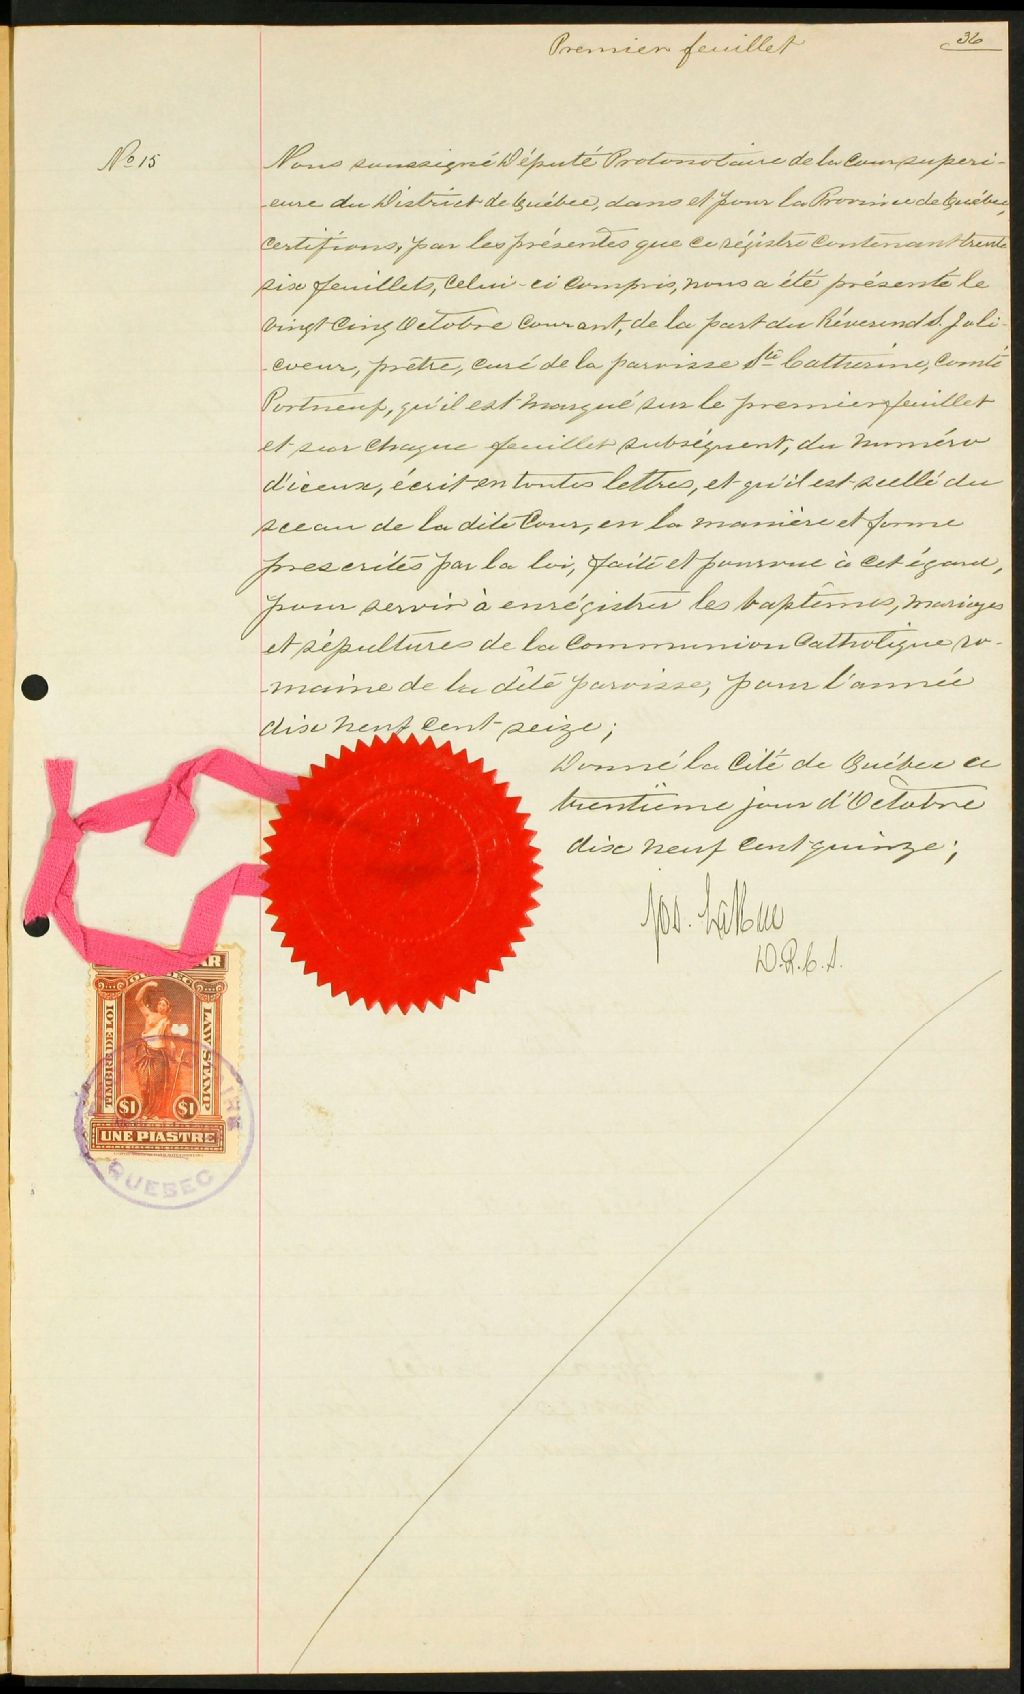 Premier feuillet
36
No 15
Nous soussigné Député Protonotaire de la Cour supéri-
-eure du District de Québec, dans et pour la Province de Québec,
certifions, par les présentes que ce régistre contenant trente
six feuillets, celui-ci compris, nous a été présenté le
vingt cinq Octobre courant, de la part du Révérend S. Joli-
-coeur, prêtre, curé de la paroisse Ste Catherine, Comté
Portneuf, qu'il est marqué sur le premier feuillet
et sur chaque feuillet subséquent, du numéro
d'iceux, écrit en toutes lettres, et qu'il est scellé du
sceau de la dite Cour, en la manière et forme
prescrites par la loi, faite et pourvue à cet égard,
pour servir à enrégistrer les baptêmes, mariages
et sépultures de la Communion Catholique ro-
-maine de la dite paroisse, pour l'année
dix neuf cent seize;
Donné la Cité de Québec ce
trentième jour d'Octobre
dix neuf cent quinze;
Jos. LaRue
D.P.C.S.
AR
QUEBEC
TIMBRE DE LOI
LAW STAMP
$1 $1
UNE PIASTRE
QUEBEC